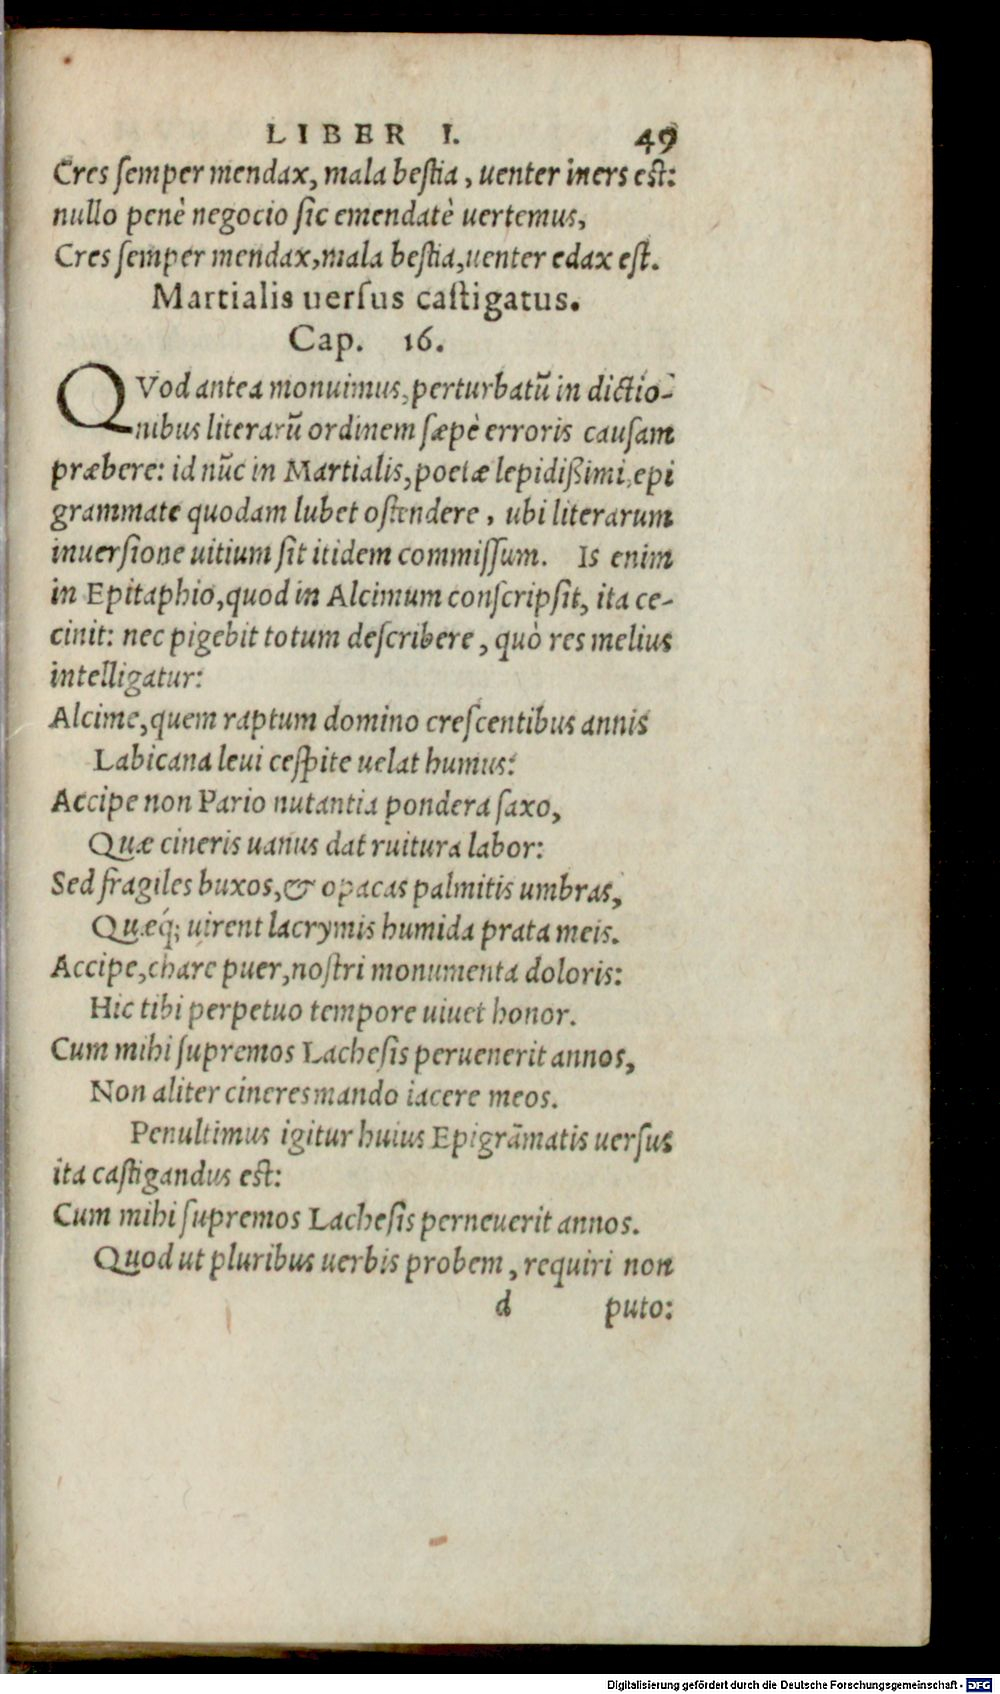 LIBER I. 49
Cres ſemper mendax, mala beſtia, uenter iners eſt:
nullo penè negocio ſic emendatè uertemus,
Cres ſemper mendax, mala beſtia, uenter edax eſt.
Martialis uerſus caſtigatus.
Cap. 16.
QVod antea monuimus, perturbatũ in dictio-
nibus literarũ ordinem ſæpè erroris cauſam
præbere: id nũc in Martialis, poetæ lepidißimi, epi
grammate quodam lubet oſtendere, ubi literarum
inuerſione uitium ſit itidem commiſſum. Is enim
in Epitaphio, quod in Alcimum conſcripſit, ita ce-
cinit: nec pigebit totum deſcribere, quò res melius
intelligatur:
Alcime, quem raptum domino creſcentibus annis
Labicana leui ceſpite uelat humus:
Accipe non Pario nutantia pondera ſaxo,
Quæ cineris uanus dat ruitura labor:
Sed fragiles buxos, & opacas palmitis umbras,
Quæq́; uirent lacrymis humida prata meis.
Accipe, chare puer, noſtri monumenta doloris:
Hic tibi perpetuo tempore uiuet honor.
Cum mihi ſupremos Lacheſis peruenerit annos,
Non aliter cineres mando iacere meos.
Penultimus igitur huius Epigrãmatis uerſus
ita caſtigandus eſt:
Cum mihi ſupremos Lacheſis perneuerit annos.
Quod ut pluribus uerbis probem, requiri non
d puto:
Digitalisierung gefördert durch die Deutsche Forschungsgemeinschaft - DFG